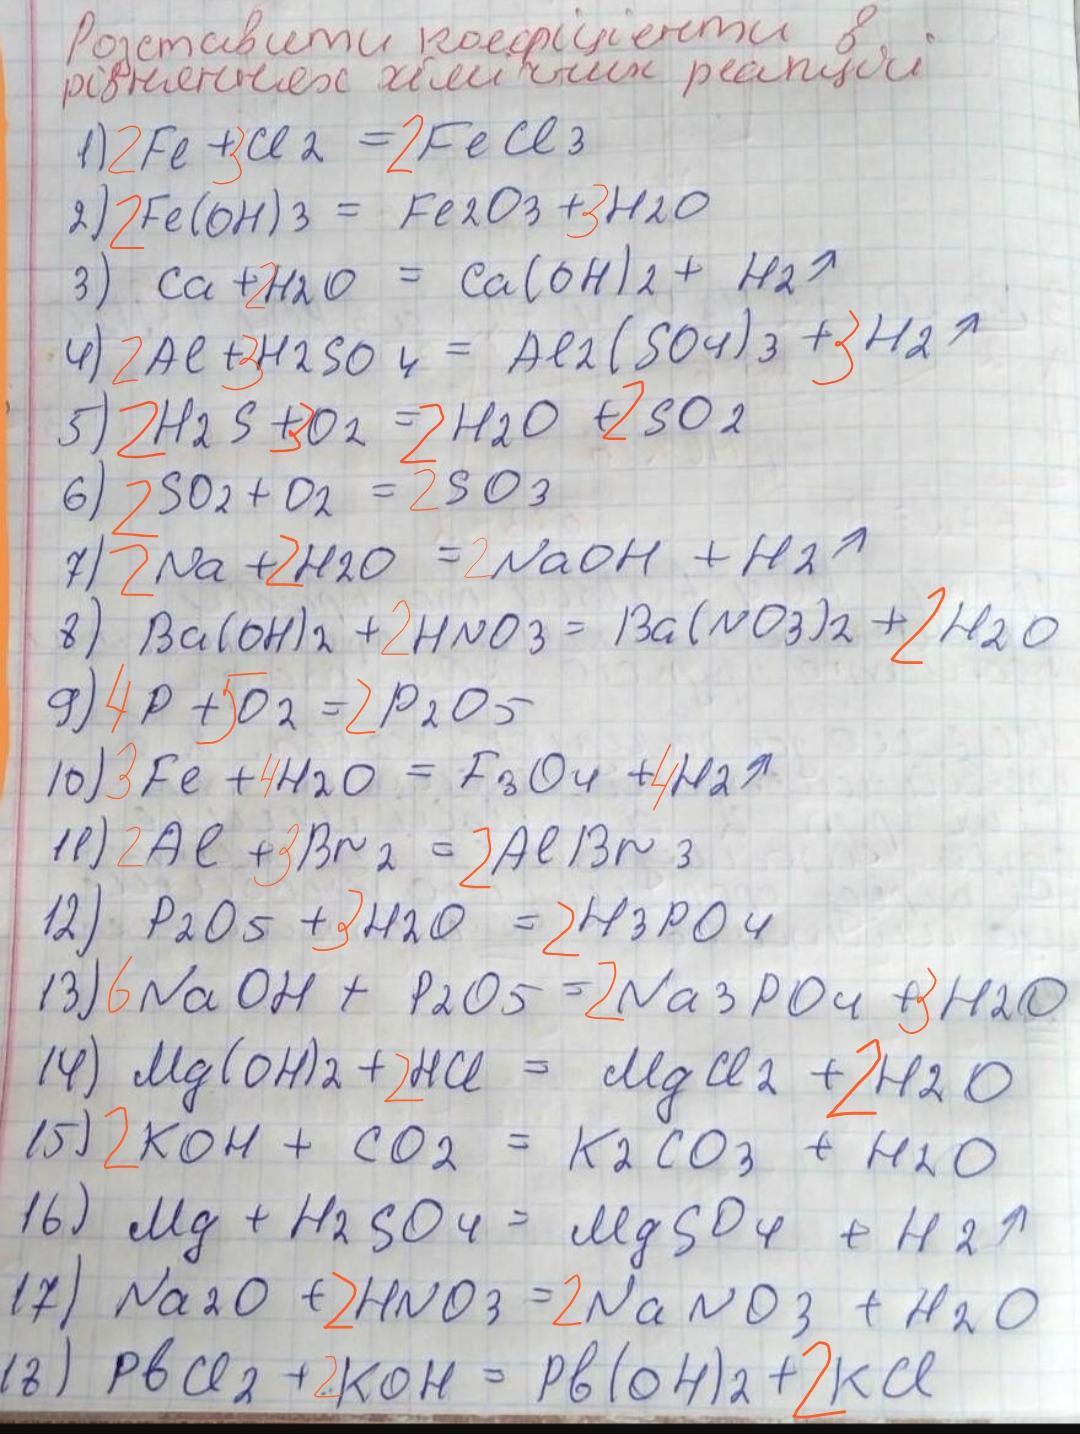 Розставити коефіцієнти в
рівняннях хімічних реакцій
1) 2Fe + 3Cl2 = 2FeCl3
2) 2Fe(OH)3 = Fe2O3 + 3H2O
3) Ca + 2H2O = Ca(OH)2 + H2↑
4) 2Al + 3H2SO4 = Al2(SO4)3 + 3H2↑
5) 2H2S + 3O2 = 2H2O + 2SO2
6) 2SO2 + O2 = 2SO3
7) 2Na + 2H2O = 2NaOH + H2↑
8) Ba(OH)2 + 2HNO3 = Ba(NO3)2 + 2H2O
9) 4P + 5O2 = 2P2O5
10) 3Fe + 4H2O = F3O4 + 4H2↑
11) 2Al + 3Br2 = 2AlBr3
12) P2O5 + 3H2O = 2H3PO4
13) 6NaOH + P2O5 = 2Na3PO4 + 3H2O
14) Mg(OH)2 + 2HCl = MgCl2 + 2H2O
15) 2KOH + CO2 = K2CO3 + H2O
16) Mg + H2SO4 = MgSO4 + H2↑
17) Na2O + 2HNO3 = 2NaNO3 + H2O
18) PbCl2 + 2KOH = Pb(OH)2 + 2KCl